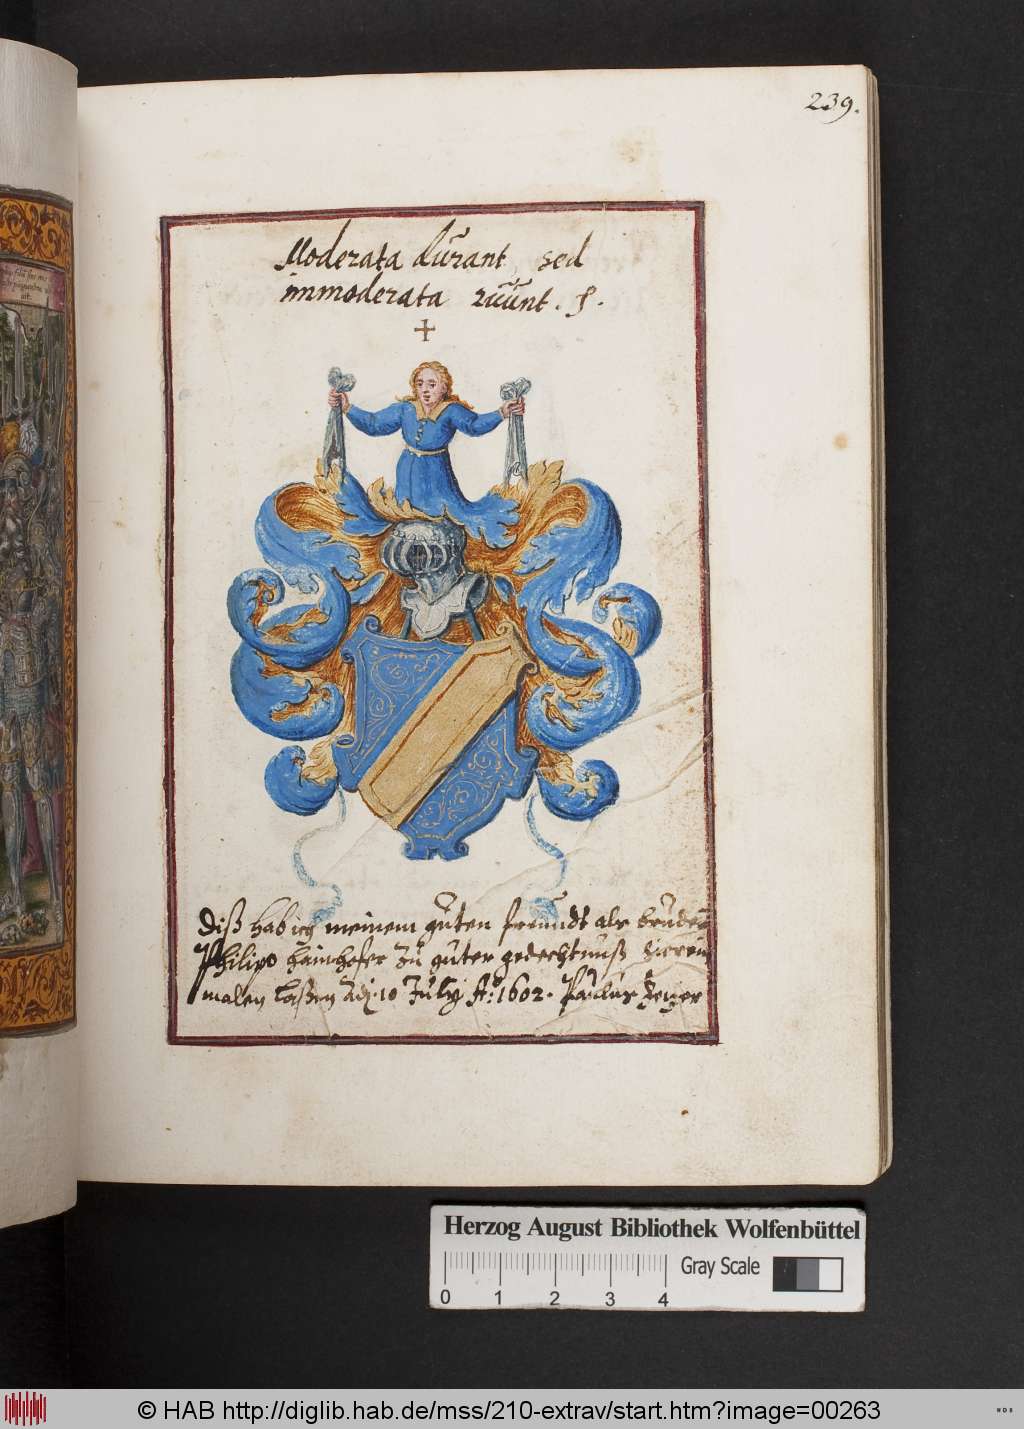 239.
Moderata durant, sed
immoderata ruunt. S.
Diß hab ich meinem guten freundt als bruder
Philipo Hainhofer zu guter gedechtnuß
malen laßen Adj. 10 July A: 1602. Paulus
Herzog August Bibliothek Wolfenbüttel
Gray Scale
0 1 2 3 4
© HAB http://diglib.hab.de/mss/210-extrav/start.htm?image=00263